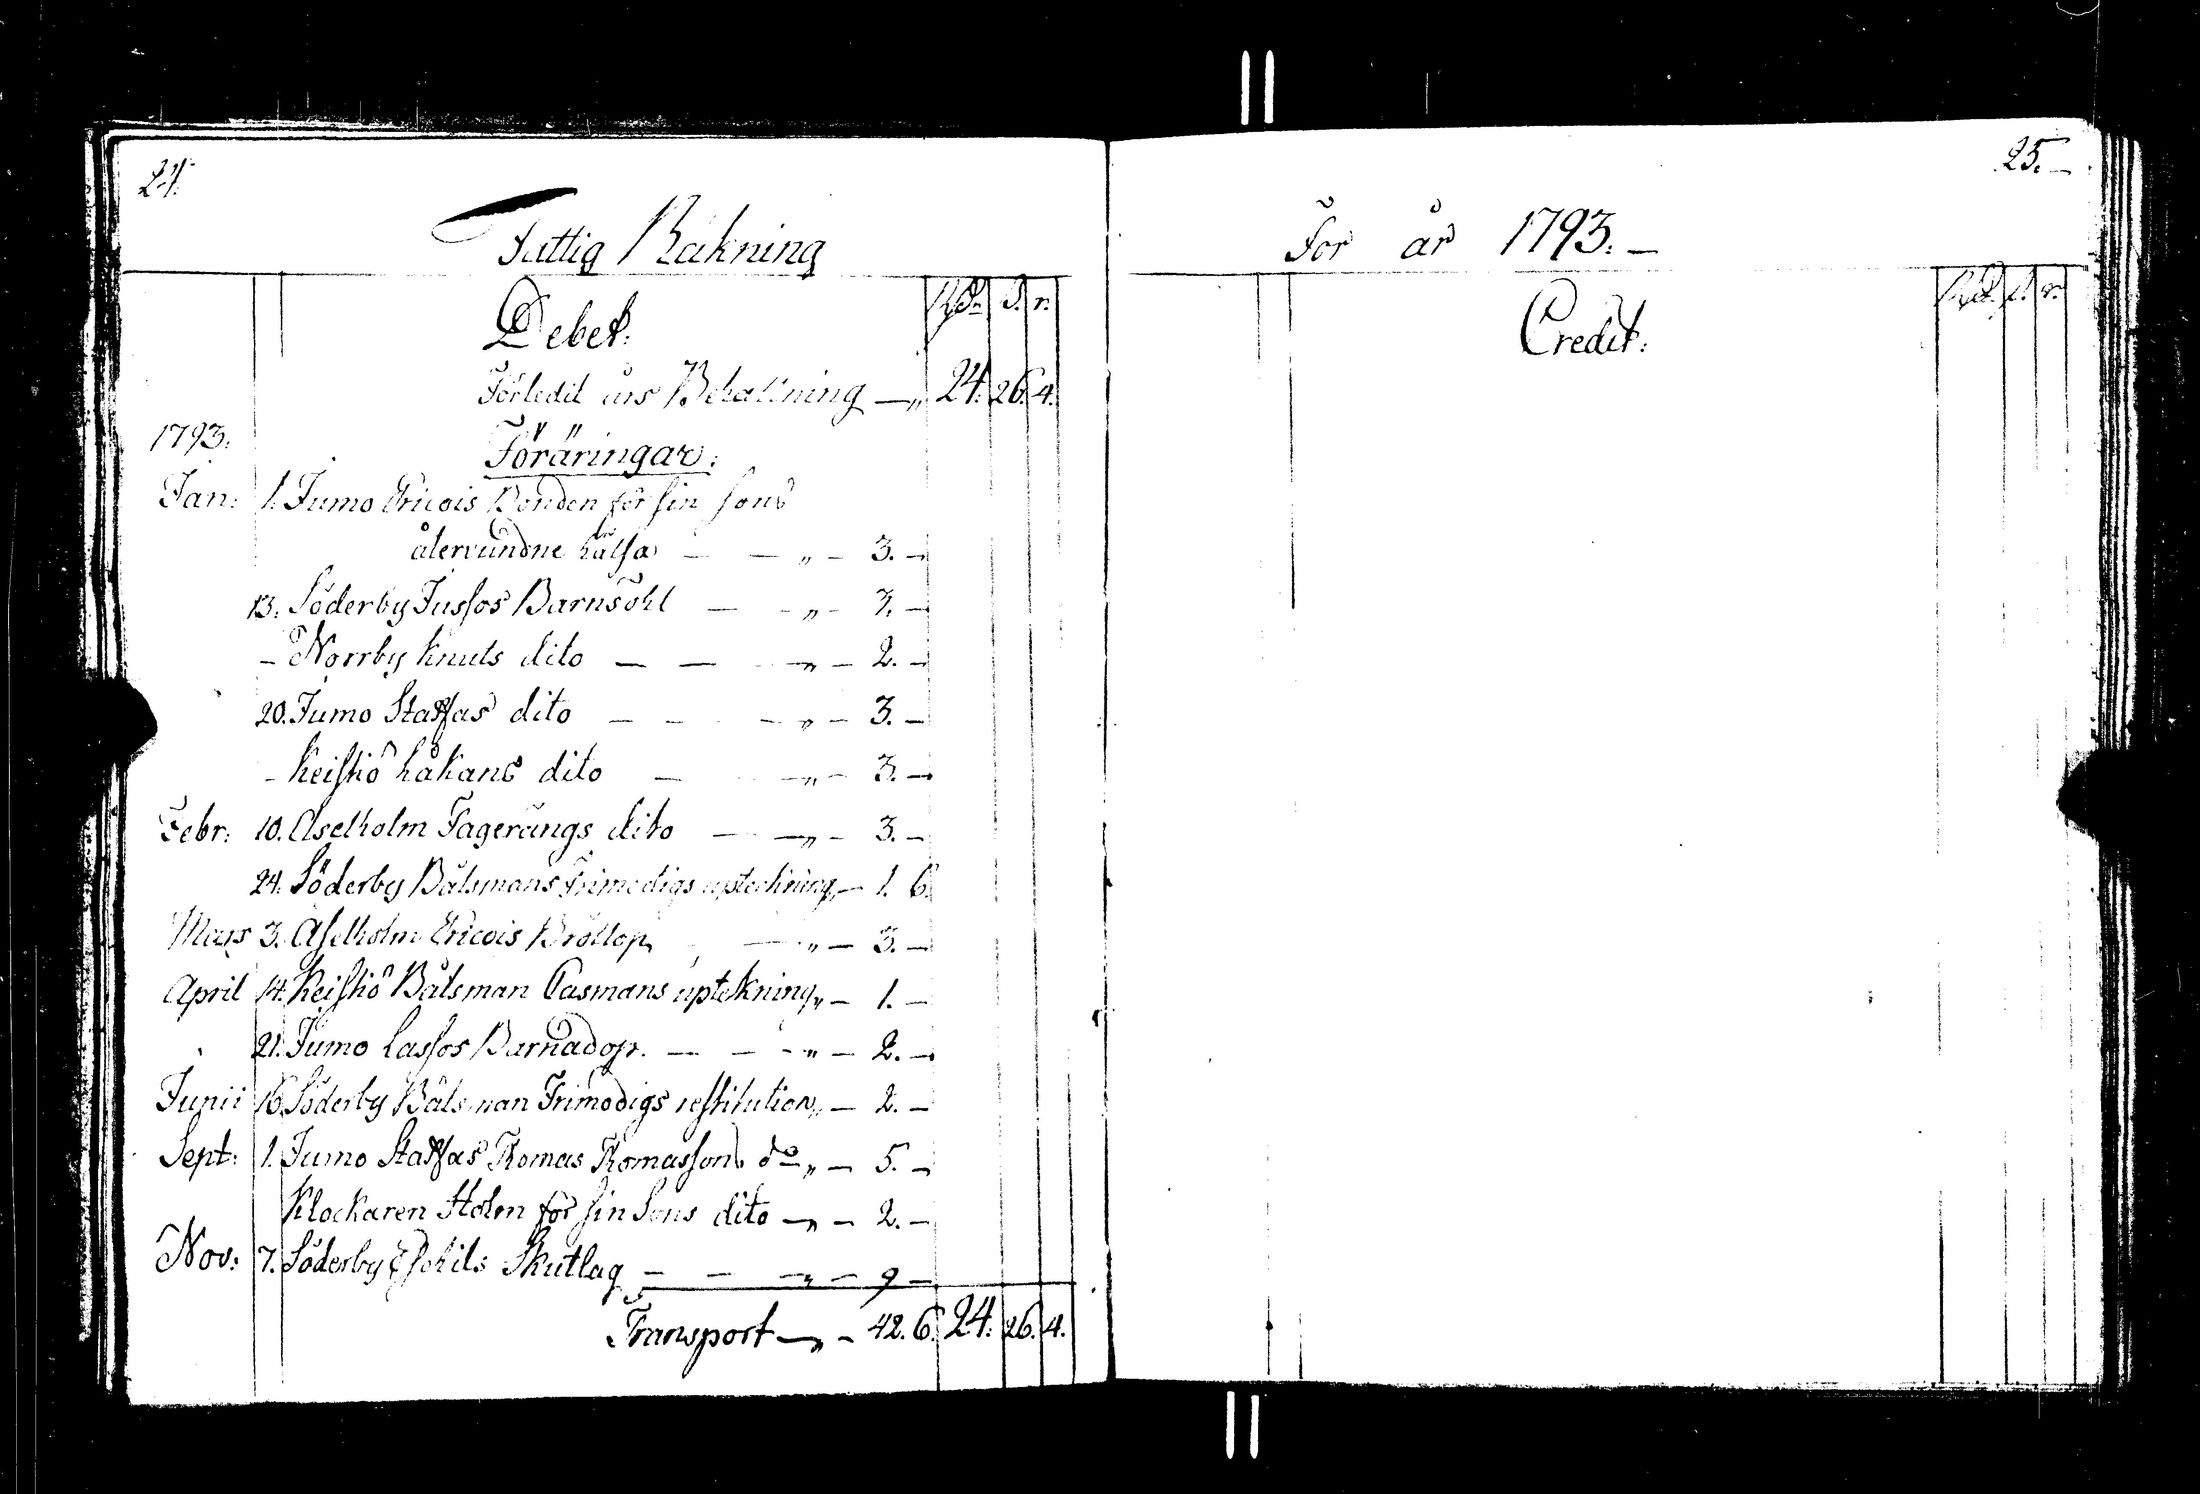 24.
Fattig Räkning
Debet: Rdr s. r.
Förledit års Behållning — „ 24. 26. 4.
1793.
Föräringar:
Jan: 1. Jumo Ericois Bonden för sin sons
återvundne hälsa — — „ — 3. —
13. Söderby Jussos Barnsöhl — — „ — 3. —
— Norrby Knuts dito — — — „ — 2. —
20. Jumo Staffas dito — — — „ — 3. —
— Keistiö håkans dito — — „ — 3. —
Febr: 10. Aselholm Fagerängs dito — — „ — 3. —
24. Söderby Båtsmans Frimodigs upteckning „ — 1. 6.
Mars 3. Aselholm Ericois Bröllop — „ — 3. —
April 14. Keistiö Båtsman Casmans uptekning „ — 1. —
21. Jumo Lassos Barnadop. — — — „ — 2. —
Junii 16. Söderby Båtsman Frimodigs restitution „ — 2. —
Sept: 1. Jumo Staffas Thomas Thomassons do „ — 5. —
Klockaren Holm för sin Sons dito — „ — 2. —
Nov: 7. Söderby Eschils Skutlag — — — „ — 9 —
Transport — „ — 42. 6. 24. 26. 4.
25. —
För år 1793. —
Credit: Rdr s. r.